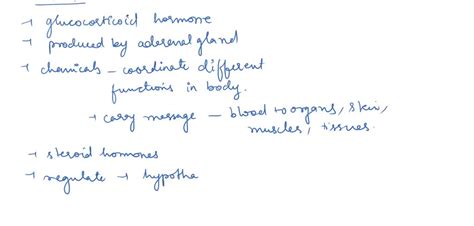 → glucocorticoid hormone
→ produced by aderenal gland
→ chemicals – coordinate different
functions in body.
→ carry message – blood to organs, skin,
muscles, tissues.
→ steroid hormones
→ regulate → hypotha